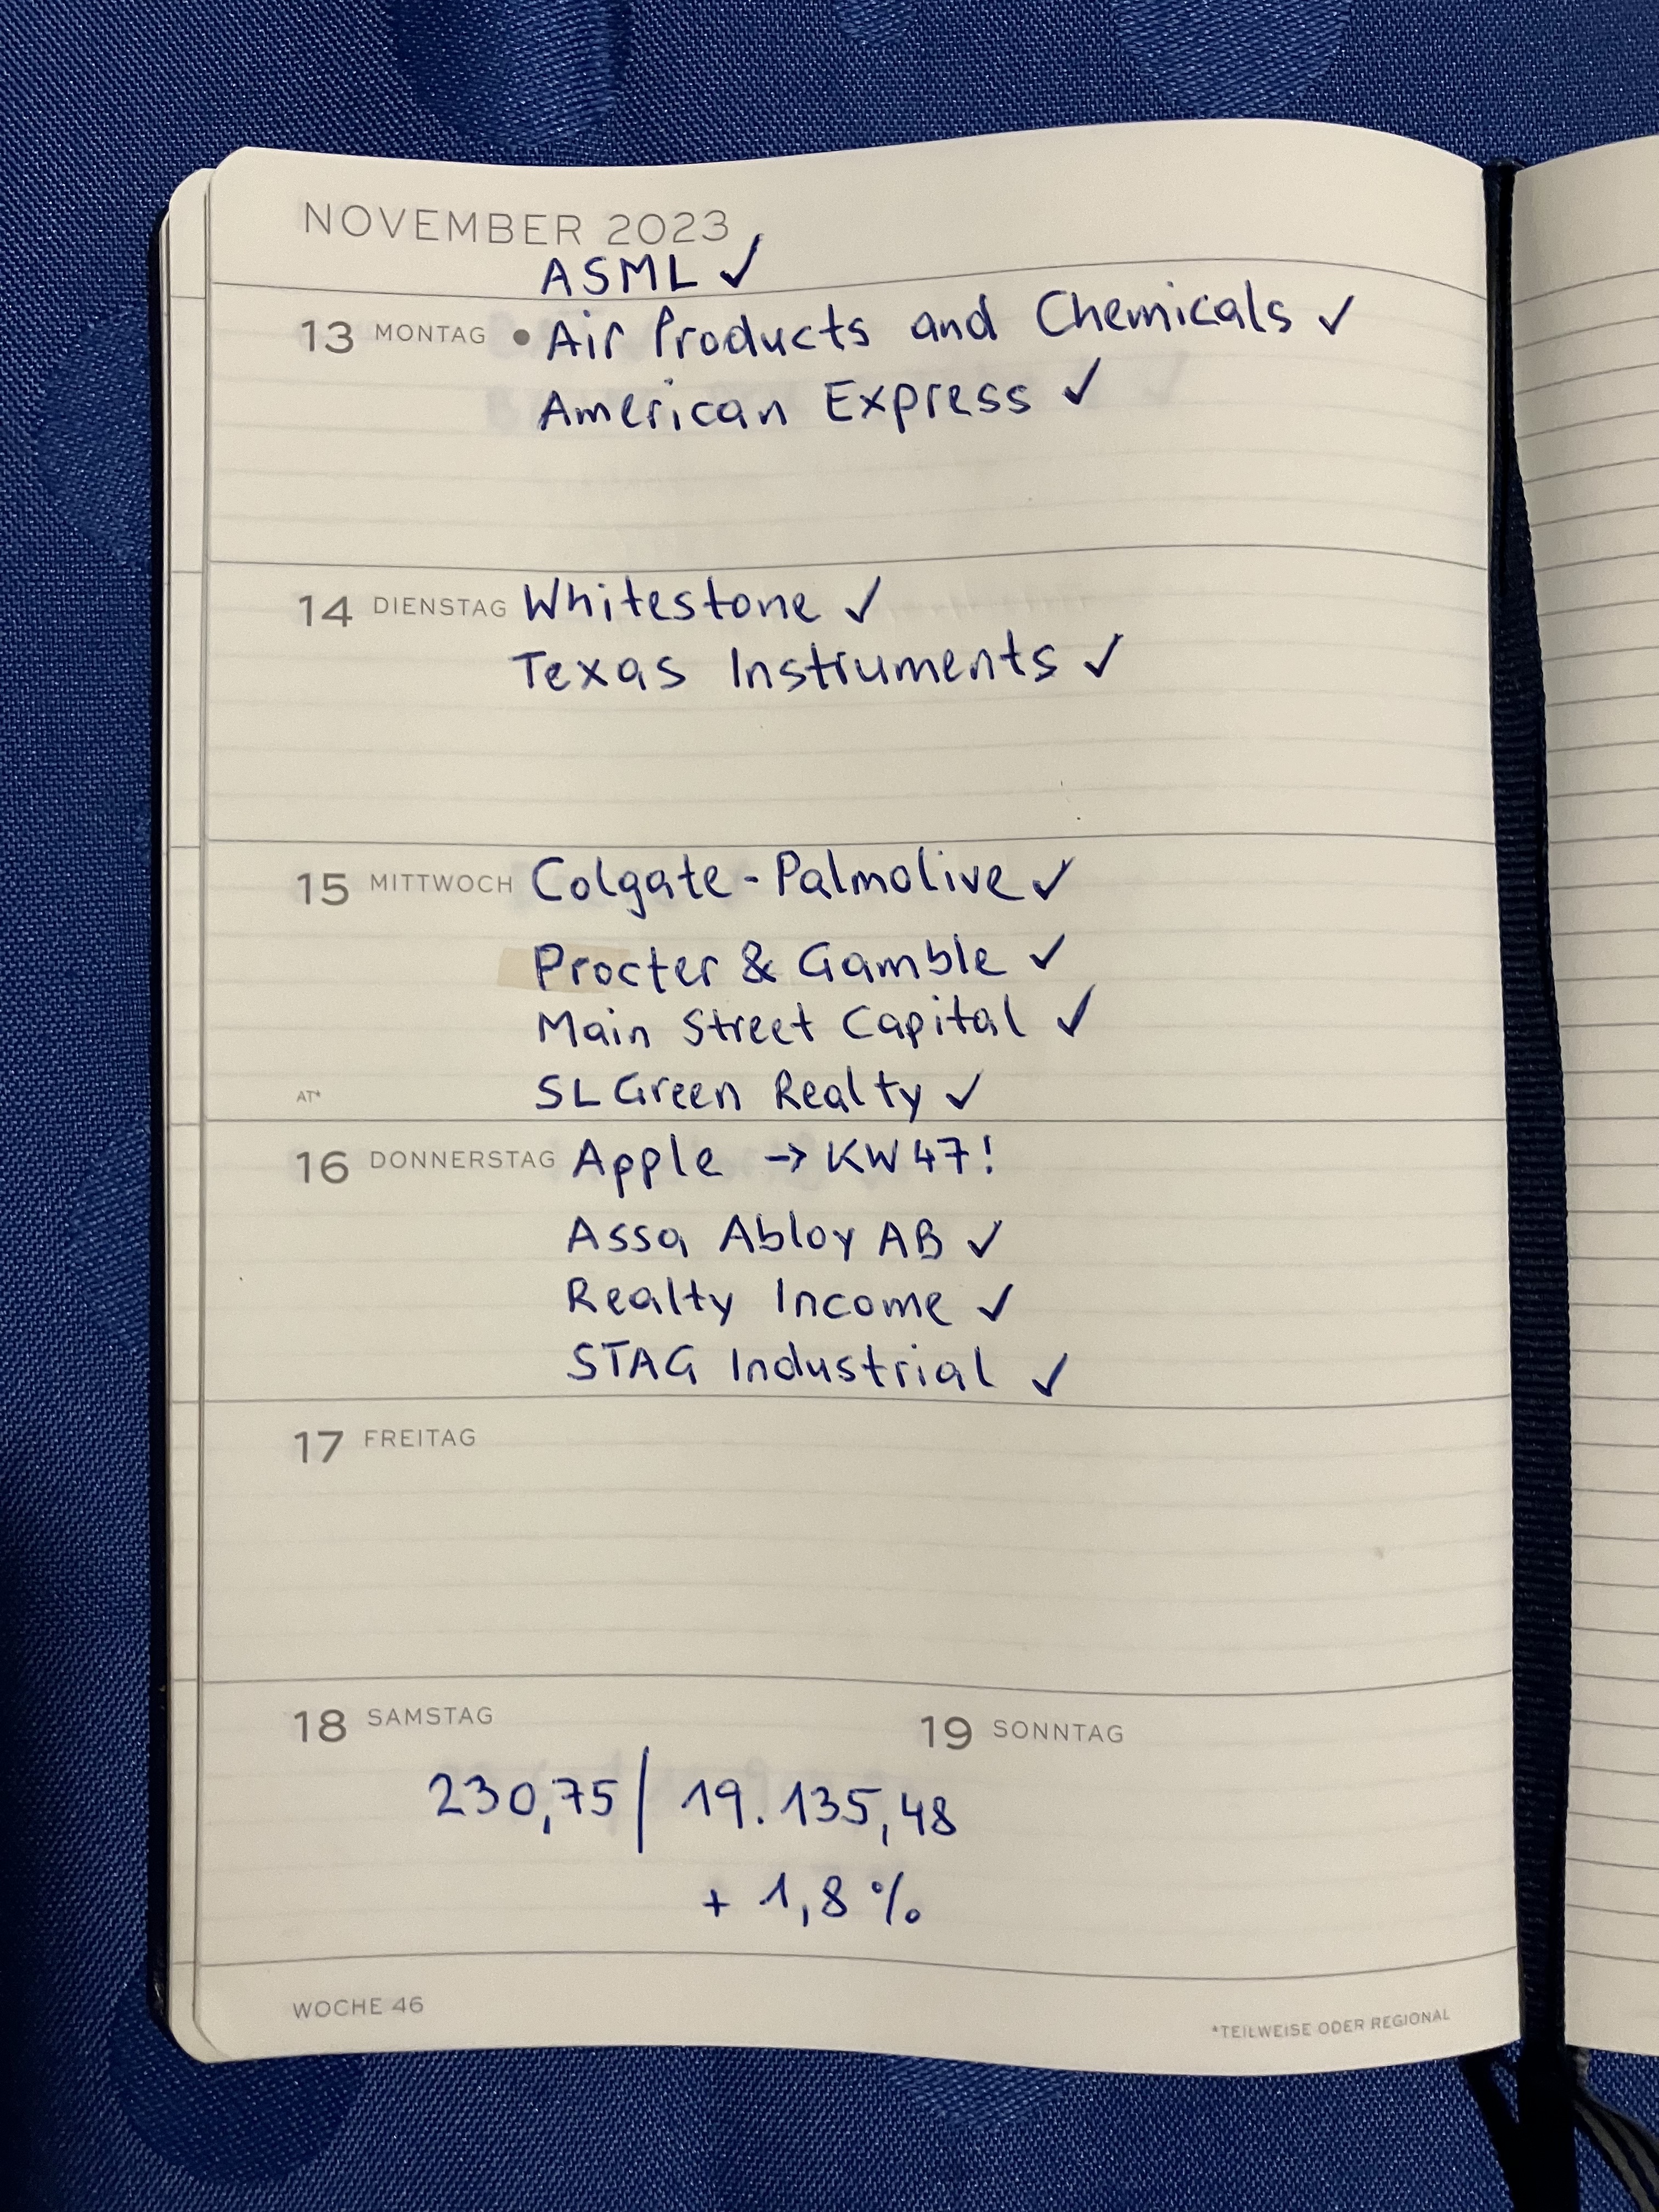 NOVEMBER 2023
ASML ✓
13 MONTAG • Air Products and Chemicals ✓
American Express ✓
14 DIENSTAG Whitestone ✓
Texas Instruments ✓
15 MITTWOCH Colgate-Palmolive ✓
Procter & Gamble ✓
Main Street Capital ✓
AT* SL Green Realty ✓
16 DONNERSTAG Apple → KW47!
Assa Abloy AB ✓
Realty Income ✓
STAG Industrial ✓
17 FREITAG
18 SAMSTAG 19 SONNTAG
230,75 | 19.135,48
+ 1,8 %
WOCHE 46
*TEILWEISE ODER REGIONAL